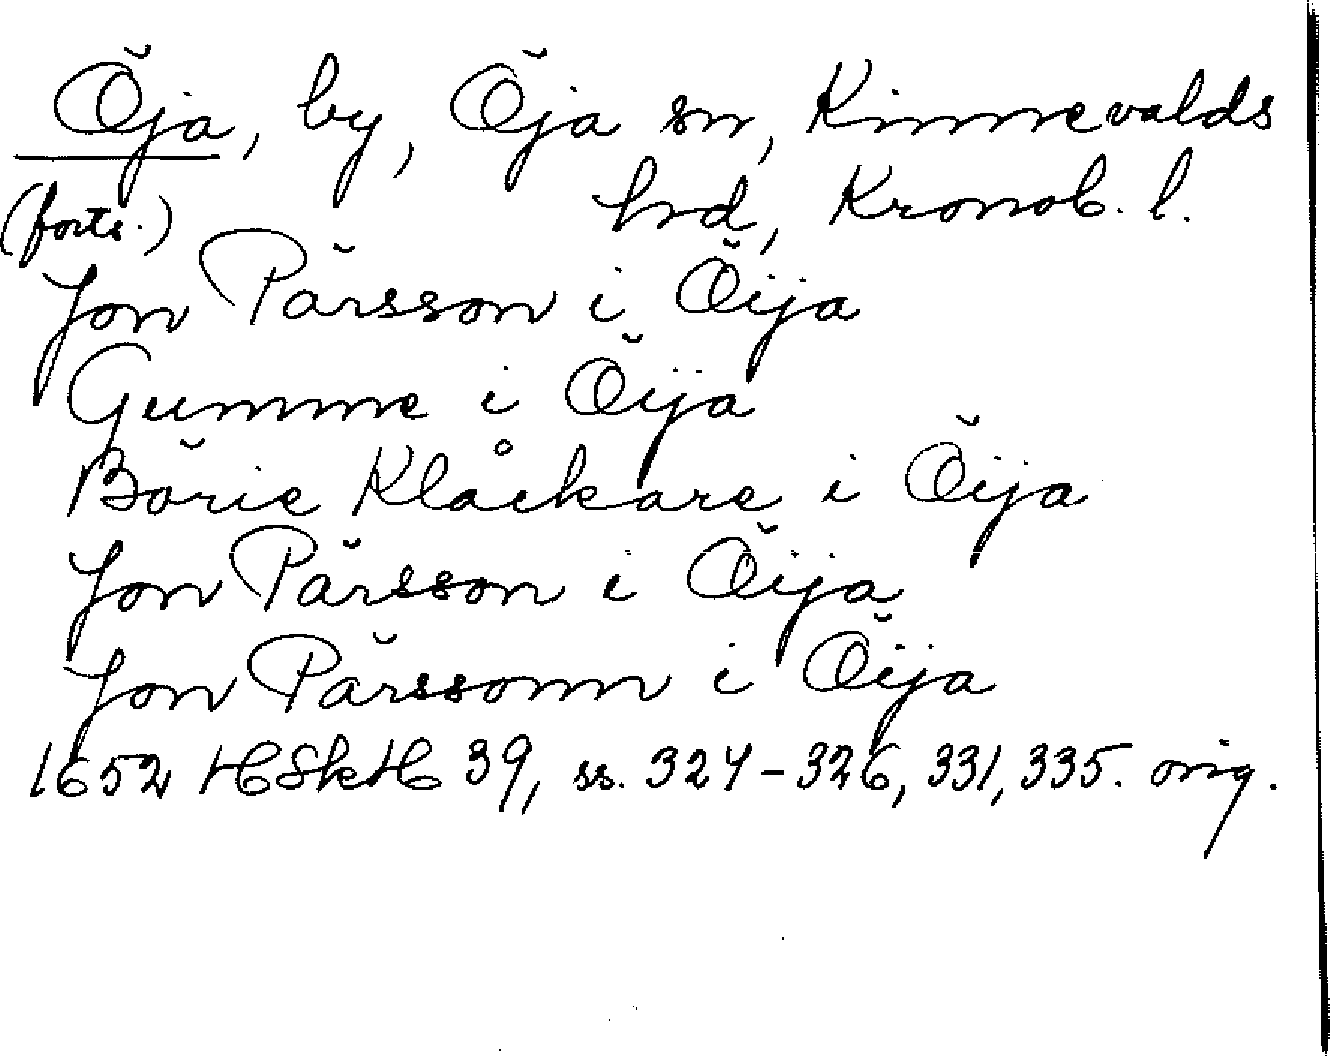 Öja, by, Öja sn, Kinnevalds
(forts.) hrd, Kronob. l.
Jon Pärsson i Öija
Gumme i Öija
Börie Klåckare i Öija
Jon Pärsson i Öija
Jon Pärssonn i Öija
1652 HSkH 39, ss. 324-326, 331, 335. orig.